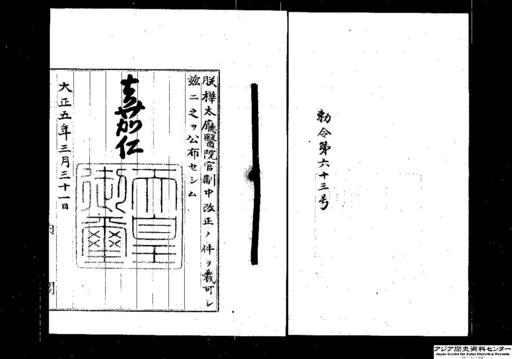 勅令第六十三号
朕樺太廳醫院官制中改正ノ件ヲ裁可シ
茲ニ之ヲ公布セシム
嘉仁
天皇御璽
大正五年三月三十一日
内閣
アジア歴史資料センター
Japan Center for Asian Historical Records